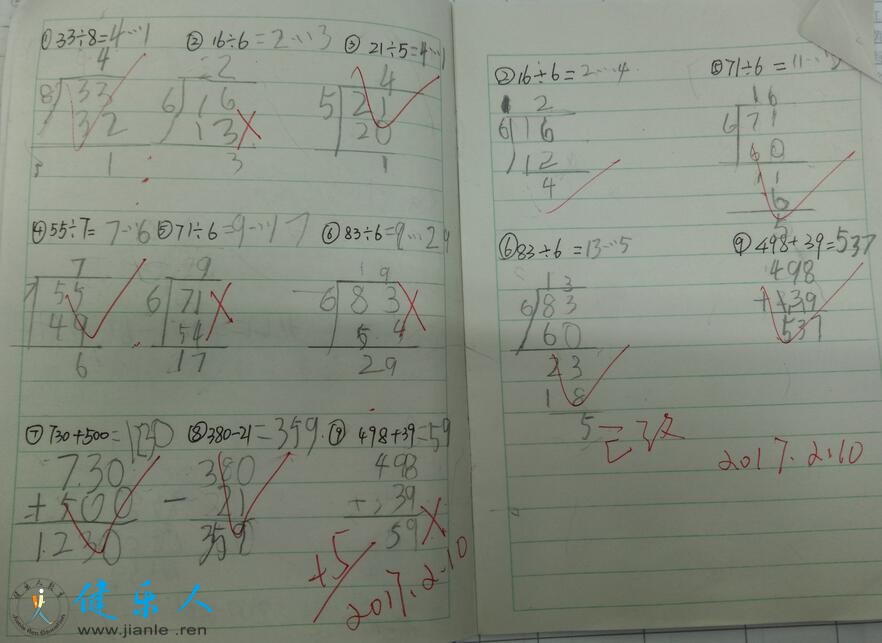 ①33÷8=4…1 ②16÷6=2…3 ③21÷5=4…1
4
8 33
32
1
2
6 16
13
3
4
5 21
20
1
④55÷7=7…6 ⑤71÷6=9…17 ⑥83÷6=9…29
7
7 55
49
6
9
6 71
54
17
19
6 83
54
29
⑦730+500=1230 ⑧380-21=359 ⑨498+39=59
730
+500
1230
380
-21
359
498
+39
59
+5
2017.2.10
健乐人
www.jianle.ren
②16÷6=2…4 ⑤71÷6=11…5
2
6 16
12
4
16
6 71
60
11
6
5
⑥83÷6=13…5 ⑨498+39=537
13
6 83
60
23
18
5
498
+39
537
已改
2017.2.10